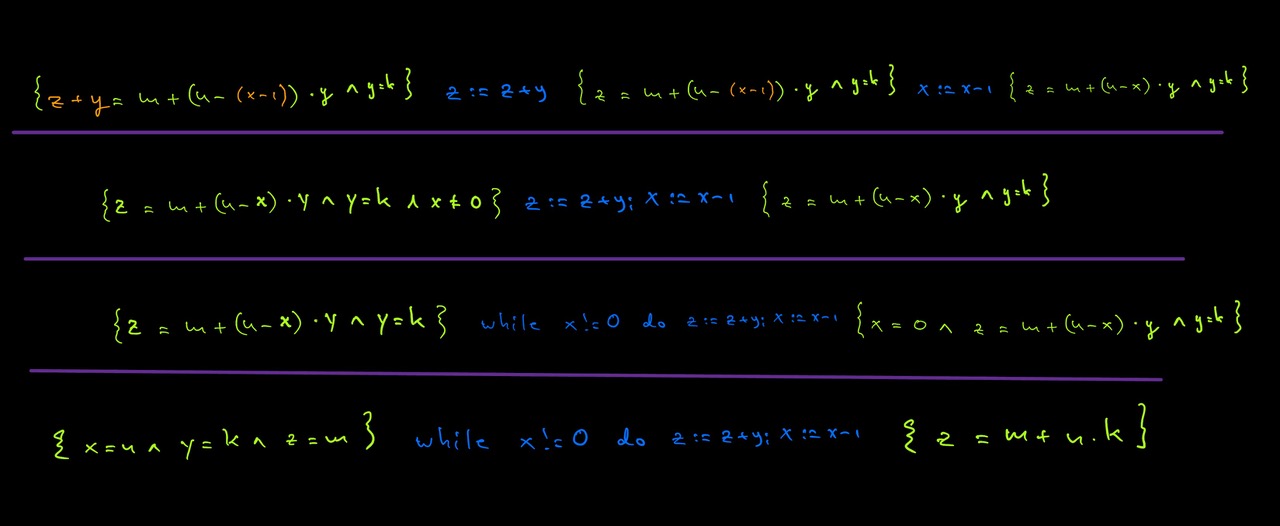 {z + y = m + (n - (x-1)) · y ∧ y=k} z := z + y {z = m + (n - (x-1)) · y ∧ y=k} x := x-1 {z = m + (n-x) · y ∧ y=k}
{z = m + (n-x) · y ∧ y=k ∧ x ≠ 0} z := z + y; x := x-1 {z = m + (n-x) · y ∧ y=k}
{z = m + (n-x) · y ∧ y=k} while x!=0 do z := z+y; x := x-1 {x = 0 ∧ z = m + (n-x) · y ∧ y=k}
{x=n ∧ y=k ∧ z=m} while x!=0 do z := z+y; x := x-1 {z = m + n.k}